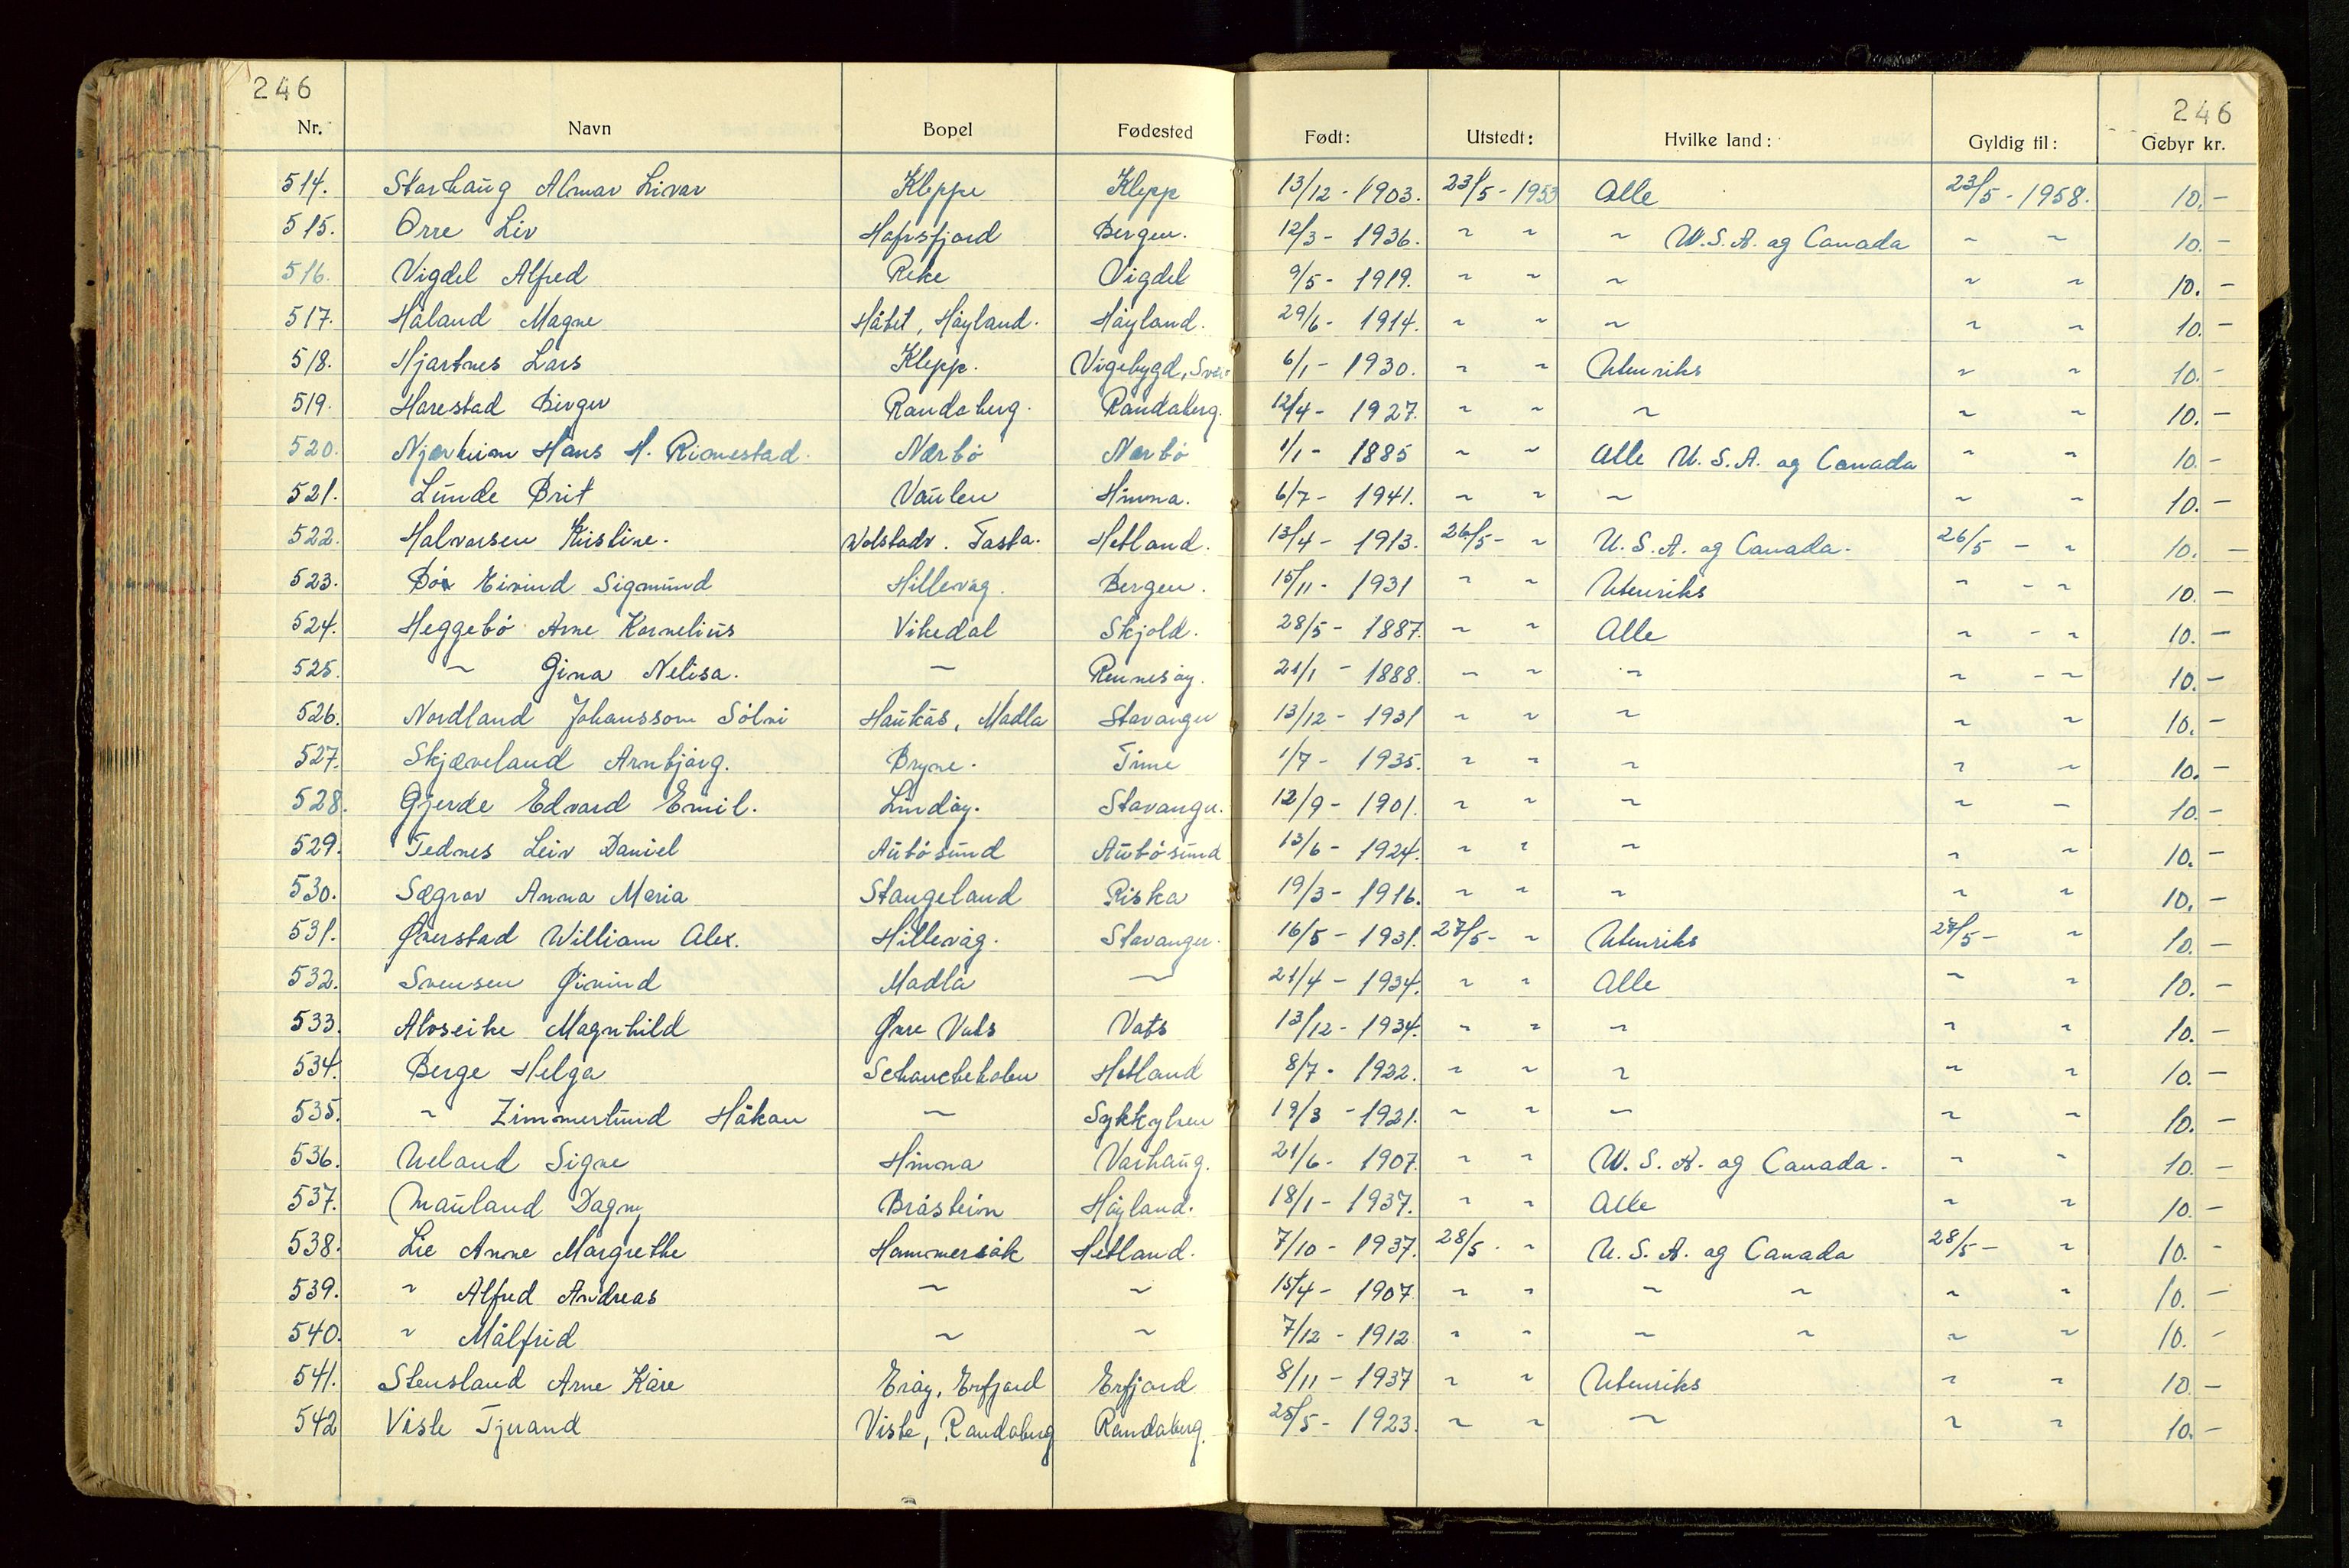 246 246
Nr. Navn Bopel Fødested Født: Utstedt: Hvilke land: Gyldig til: Gebyr kr.
514. Storhaug Almar Livar Kleppe Klepp 13/12 - 1903. 23/5 - 1953 Alle 23/5 - 1958. 10. -
515. Orre Liv Hafrsfjord Bergen. 12/3 - 1936. " " " U.S.A. og Canada " " 10. -
516. Vigdel Alfred Reke Vigdel 9/5 - 1919. " " " " " 10. -
517. Håland Magne Håbet, Høyland. Høyland. 29/6 - 1914. " " " " " 10. -
518. Hjartnes Lars Klepp. Vigebygd, 6/1 - 1930. " " Utenriks " " 10. -
519. Harestad Birger Randaberg. Randaberg. 12/4 - 1927. " " " " " 10. -
520. Njærheim Hans H. Rimestad. Nærbö Nærbö 1/1 - 1885 " " Alle U.S.A. og Canada " " 10. -
521. Lunde Brit Vaulen Hinna. 6/7 - 1941. " " " " " 10. -
522. Halvorsen Kristine. Volstadv. Tasta. Hetland. 13/4 - 1913. 26/5 - " U.S.A. og Canada. 26/5 - " 10. -
523. Eivind Sigmund Hillevåg. Bergen. 15/11 - 1931 " " Utenriks " - " 10. -
524. Heggebö Arne Kornelius Vikedal Skjold. 28/5 - 1887. " " Alle " - " 10. -
525. " Gina Nelisa. " Rennesøy. 21/1 - 1888. " " " " - " 10. -
526. Nordland Johansson Sölvi Haukås, Madla Stavanger 13/12 - 1931 " " " " " 10. -
527. Skjæveland Arnbjørg. Bryne. Time 1/7 - 1935. " " " " " 10. -
528. Gjerde Edvard Emil. Lindøy. Stavanger. 12/9 - 1901. " " " " " 10. -
529. Tednes Leiv Daniel Aubösund Aubösund 13/6 - 1924. " " " " " 10. -
530. Sægrov Anna Maria Stangeland Riska 19/3 - 1916. " " " " " 10. -
531. Øverstad William Alex. Hillevåg. Stavanger. 16/5 - 1931. 27/5 - " Utenriks 27/5 - " 10. -
532. Svensen Øivind Madla " 21/4 - 1934. " " Alle " " 10. -
533. Alvseike Magnhild Øvre Vats Vats 13/12 - 1934. " " " " " 10. -
534. Berge Helga Schancheholen Hetland 8/7 - 1922. " " " " " 10. -
535. " Zimmerlund Håkan " Sykkylven 19/3 - 1921. " " " " " 10. -
536. Ueland Signe Hinna Varhaug. 21/6 - 1907. " " U.S.A. og Canada. " " 10. -
537. Mauland Dagny Bråstein Høyland. 18/1 - 1937. " " Alle " " 10. -
538. Lie Anne Margrethe Hommersåk Hetland. 7/10 - 1937. 28/5 - " U.S.A. og Canada 28/5 - " 10. -
539. " Alfred Andreas " " 15/4 - 1907 " " " " " " 10. -
540. " Målfrid " " 7/12 - 1912 " " " " " " 10. -
541. Stensland Arne Kåre Erøy, Erfjord Erfjord 8/11 - 1937 " " Utenriks " " 10. -
542 Viste Tjerand Viste, Randaberg Randaberg. 25/5 - 1923. " " " " " 10. -